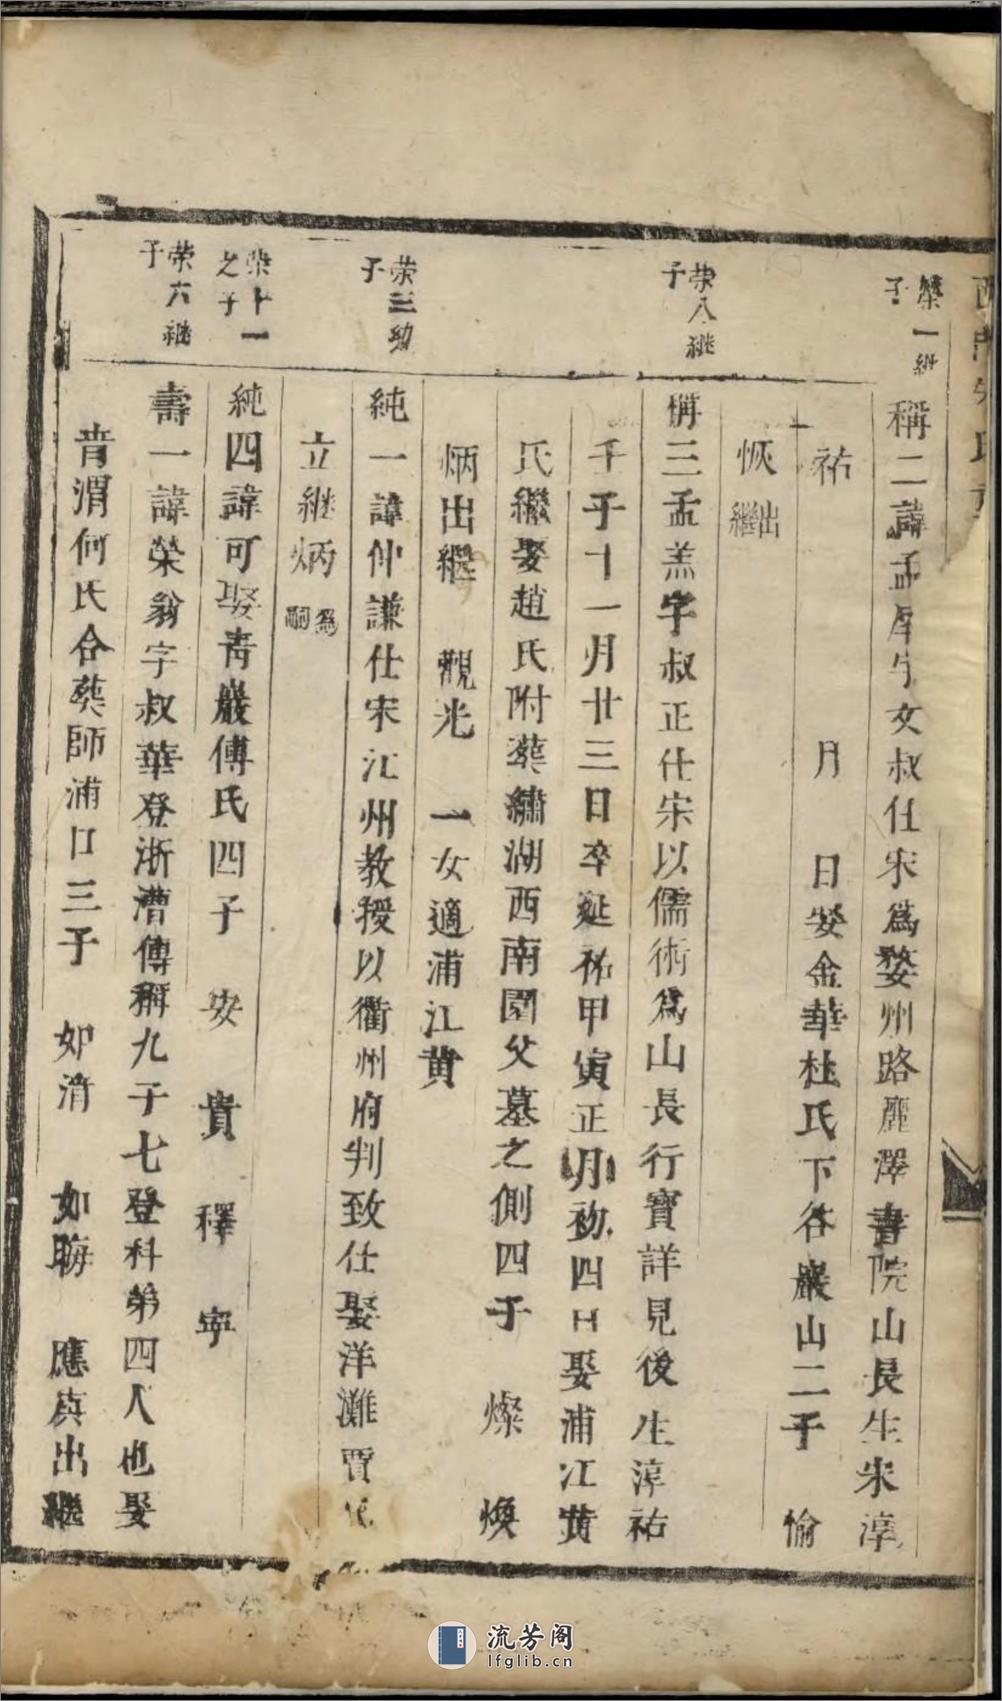 榮一繼
子
稱二諱孟厚字文叔仕宋爲婺州路麗澤書院山長生宋淳
祐　月　日娶金華杜氏下谷巖山二子　愉
恢出繼
榮八継
子
稱三孟羔字叔正仕宋以儒術爲山長行實詳見後生淳祐
壬子十一月廿三日卒延祐甲寅正月初四日娶浦江黄
氏繼娶趙氏附葬繡湖西南園父墓之側四子　燦　煥
炳出繼　觀光　一女適浦江黄
荣三幼
子
純一諱仲謙仕宋江州教授以衢州府判致仕娶洋灘賈氏
立継炳爲嗣
榮十一
之子
純四諱可娶靑巖傅氏四子　安　貴　釋　寜
荣六継
子
壽一諱荣翁字叔華登浙漕傳稱九子七登科弟四人也娶
音渭何氏合葬師浦口三子　如淯　如晦　應真出繼
流芳阁
lfglib.cn